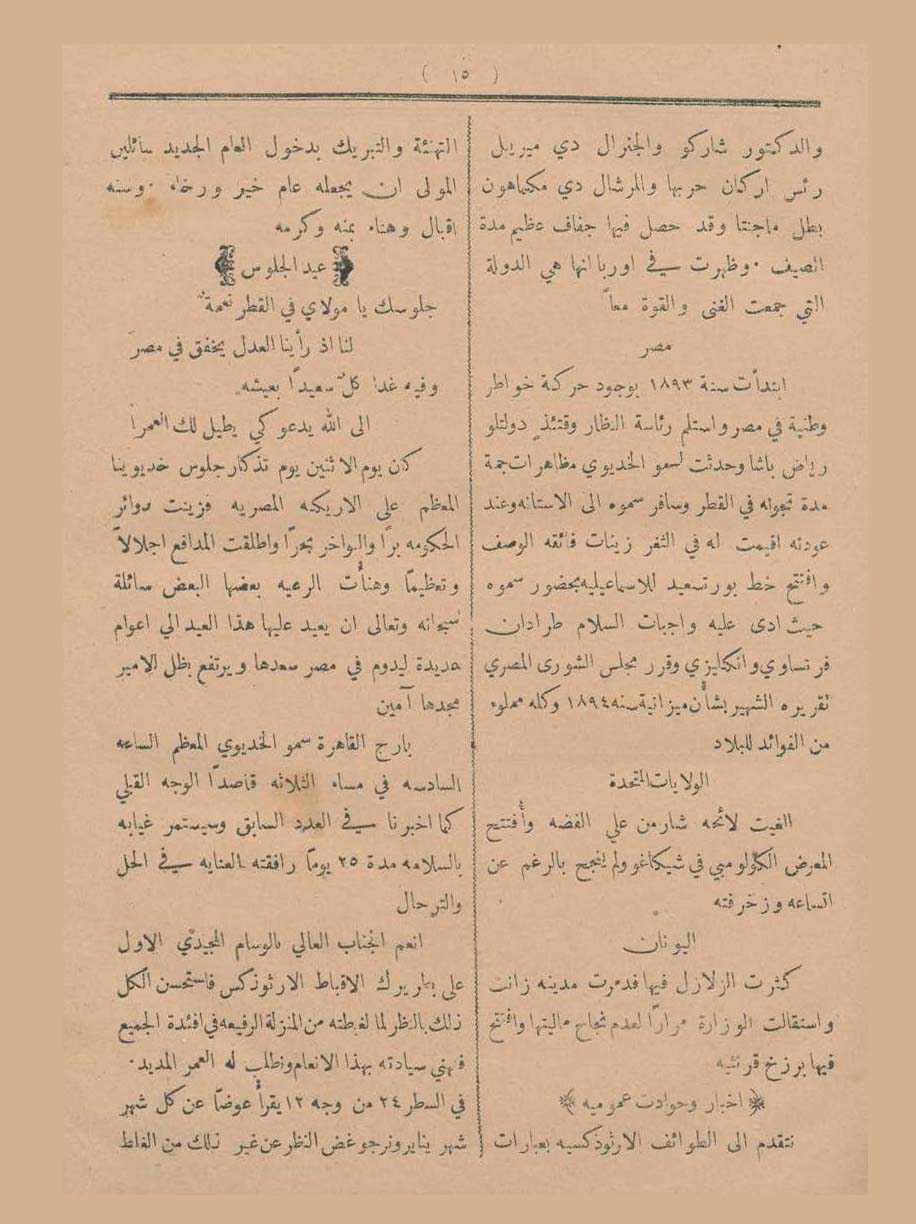 ( ١٥ )
والدكتور شاركو والجنرال دي ميريبل
رئس اركان حربها والمرشال دي مكماهون
بطل ماجنتا وقد حصل فيها جفاف عظيم مدة
الصيف ٠ وظهرت في اوربا انها هي الدولة
التي جمعت الغنى والقوة معاً
مصر
ابتدأت سنة ١٨٩٣ بوجود حركة خواطر
وطنية في مصر واستلم رئاسة النظار وقتئذٍ دولتلو
رياض باشا وحدثت لسمو الخديوي مظاهرات جمة
مدة تجوله في القطر وسافر سموه الى الاستانه وعند
عودته اقيمت له في الثغر زينات فائقه الوصف
وافتتح خط بورتسعيد للاسماعيليه بحضور سموه
حيث ادى عليه واجبات السلام طرادان
فرنساوي وانكليزي وقرر مجلس الشورى المصري
تقريره الشهير بشأن ميزانية سنه ١٨٩٤ وكله مملوء
من الفوائد للبلاد
الولايات المتحدة
الغيت لائحه شارمن علي الفضه وأفتتح
المعرض الكلولومبي في شيكاغو ولم ينجح بالرغم عن
اتساعه وزخرفته
اليونان
كثرت الزلازل فيها فدمرت مدينه زانت
واستقالت الوزارة مراراً لعدم نجاح ماليتها وافتتح
فيها برزخ قرنثيه
اخبار وحوادث عموميه
نتقدم الى الطوائف الارثوذكسيه بعبارات
التهنئة والتبريك بدخول العام الجديد سائلين
المولى ان يجعله عام خير ورخاء ٠ وسنه
اقبال وهناء بمنه وكرمه
عيد الجلوس
جلوسك يا مولاي في القطر نعمةٌ
لنا اذ رأينا العدل يخفق في مصر
وفيه غدا كلٌ سعيداً بعيشه
الى الله يدعو كي يطيل لك العمرا
كان يوم الاثنين يوم تذكار جلوس خديوينا
المعظم على الاريكه المصريه فزينت دوائر
الحكومه براً والبواخر بحراً واطلقت المدافع اجلالاً
وتعظيماً وهنأت الرعيه بعضها البعض سائلة
سبحانه وتعالى ان يعيد عليها هذا العيد الي اعوام
عديدة ليدوم في مصر سعدها ويرتفع بظل الامير
مجدها آمين
بارح القاهرة سمو الخديوي المعظم الساعه
السادسه في مساء الثلاثه قاصداً الوجه القبلي
كما اخبرنا في العدد السابق وسيستمر غيابه
بالسلامه مدة ٢٥ يوماً رافقته العنايه في الحل
والترحال
انعم الجناب العالي بالوسام المجيدي الاول
على بطريرك الاقباط الارثوذكس فاستحسن الكل
ذلك بالنظر لما لغبطته من المنزلة الرفيعه في افئدة الجميع
فنهني سيادته بهذا الانعام ونطلب له العمر المديد٠
في السطر ٢٤ من وجه ١٢ يقرأ عوضاً عن كل شهر
شهر يناير ونرجو غض النظر عن غير ذلك من الغلط